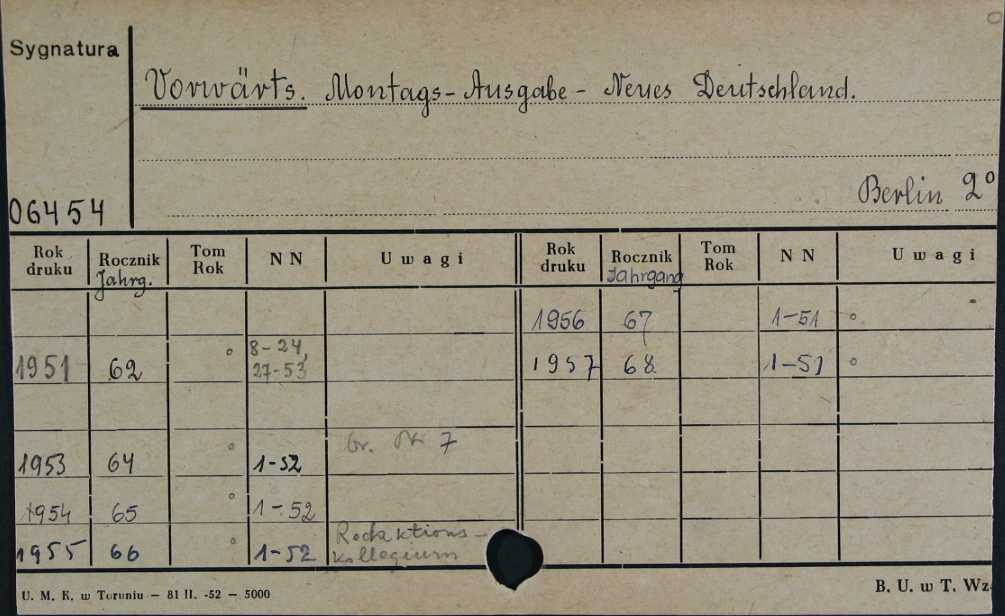 Sygnatura
Vorwärts. Montags-Ausgabe - Neues Deutschland.
Berlin 2°
06454
Rok druku Rocznik Jahrg. Tom Rok NN Uwagi Rok druku Rocznik Jahrgang Tom Rok NN Uwagi
1956 67 1-51
1951 62 8-24, 27-53
1957 68 1-51
1953 64 1-52 br. Nr 7
1954 65 1-52
1955 66 1-52 Redaktions-kollegium
U. M. K. w Toruniu — 81 II. -52 — 5000
B. U. w T. Wz